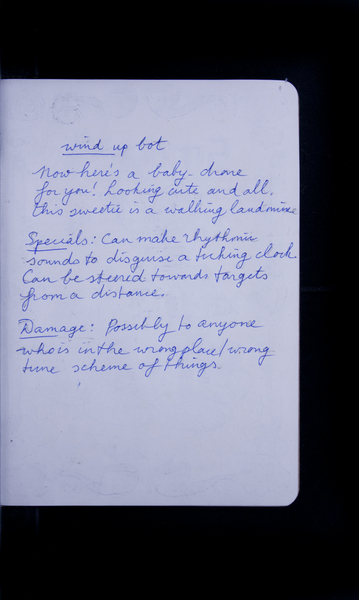 wind up bot
Now here's a baby-drone
for you! Looking cute and all,
this sweetie is a walking landmine
Specials: Can make rhythmic
sounds to disguise a ticking clock.
Can be steered towards targets
from a distance.
Damage: Possibly to anyone
who is in the wrong place/wrong
time scheme of things.